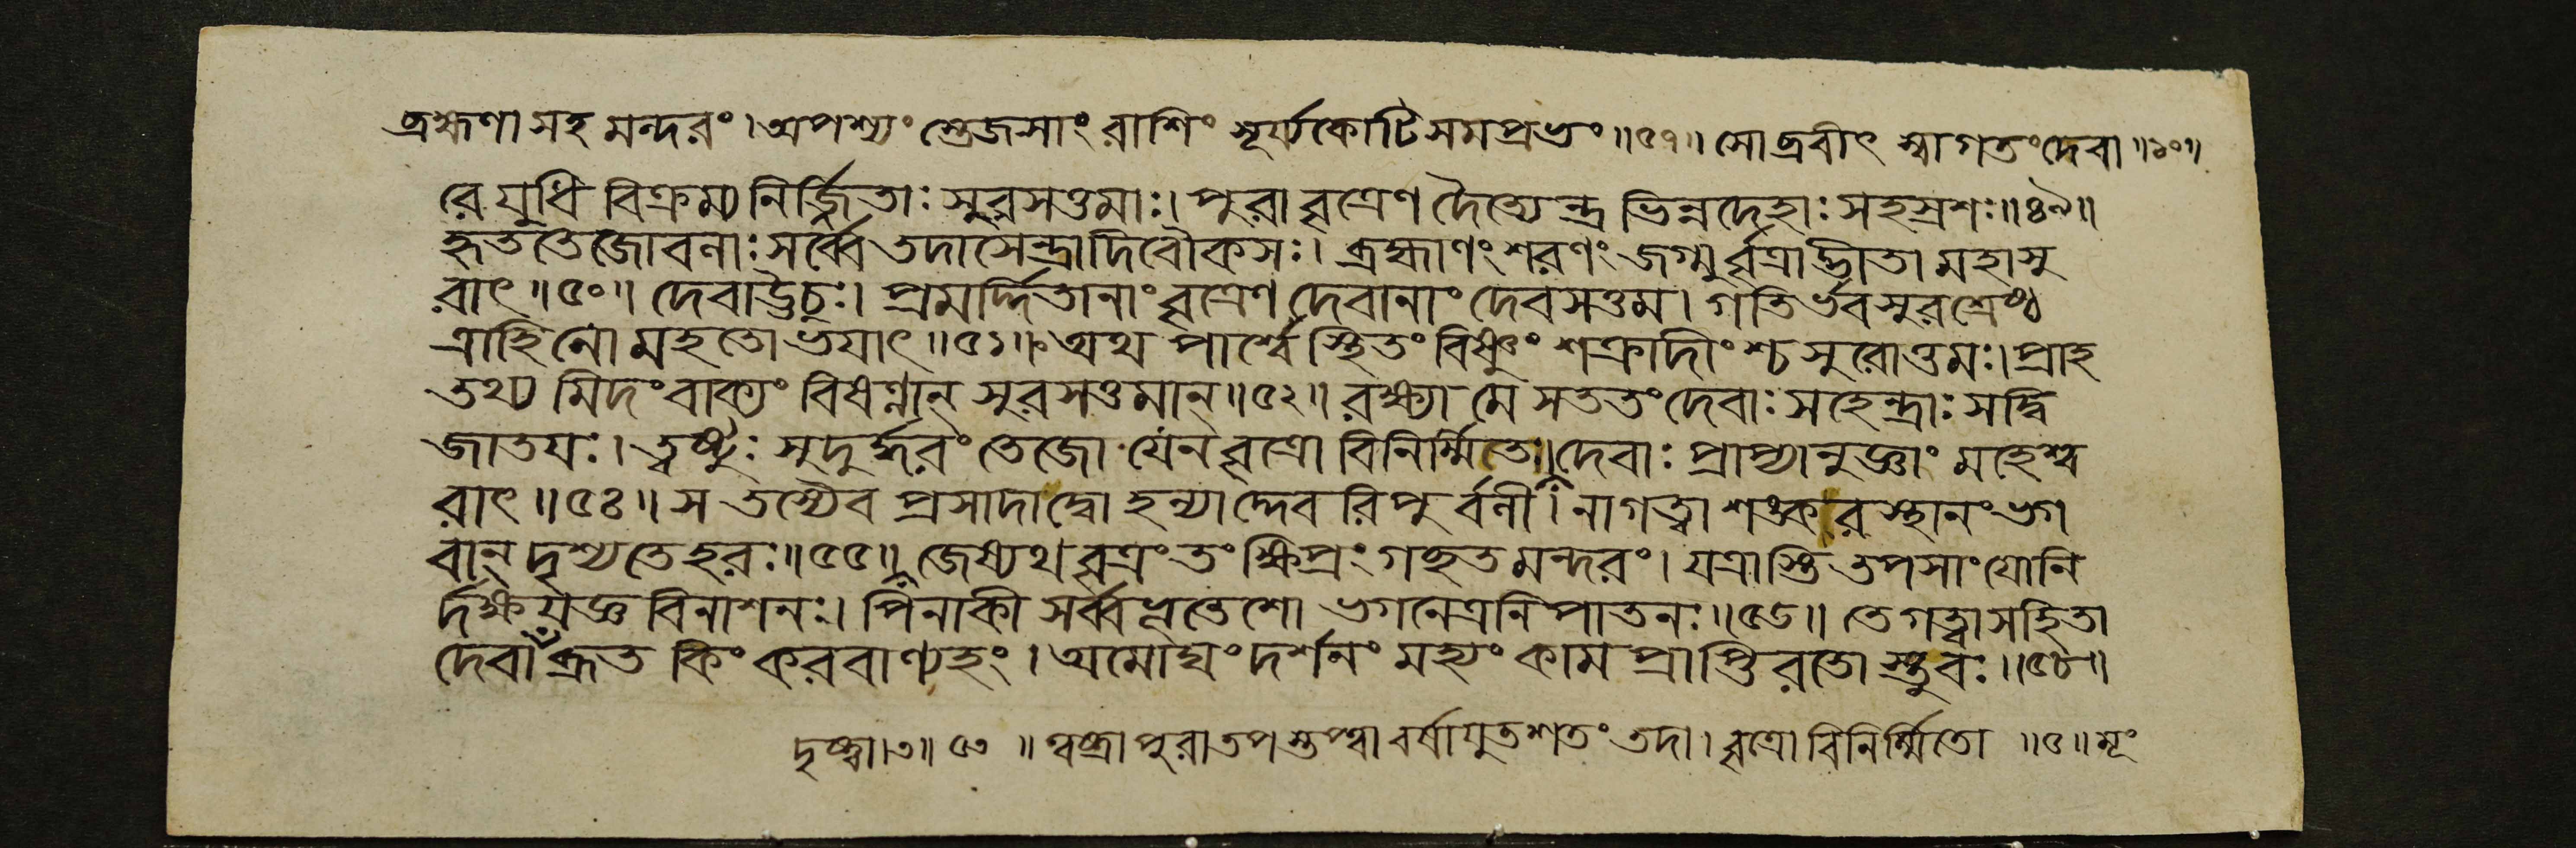 ব্রহ্মণা সহ মন্দরং । অপশ্যং স্তেজসাং রাশিং সূর্য্যকোটিসমপ্রভং ॥ ৫৭ ॥ সোব্রবীৎ স্বাগতং দেবা ॥ ১০ ॥
রে যুধি বিক্রম্য নির্জ্জিতাঃ সুরসত্তমাঃ । পুরা বৃত্রেণ দৈত্যেন্দ্র ভিন্নদেহাঃ সহস্রশঃ ॥ ৪৯ ॥
হৃততেজোবনাঃ সর্ব্বে তদা সেন্দ্রাদিবৌকসঃ । ব্রহ্মাণং শরণং জগ্মুর্বৃত্রাদ্ভীতা মহাসু
রাৎ ॥ ৫০ ॥ দেবা উচুঃ । প্রমর্দ্দিতানাং বৃত্রেণ দেবানাং দেবসত্তম । গতির্ভব সুরশ্রেষ্ঠ
ত্রাহি নো মহতো ভয়াৎ ॥ ৫১ ॥ অথ পার্শ্বে স্থিতং বিষ্ণুং শক্রাদীংশ্চ সুরোত্তমঃ । প্রাহ
তথ্যমিদং বাক্যং বিষণ্ণান্ সুরসত্তমান্ ॥ ৫২ ॥ রক্ষ্যা মে সততং দেবাঃ সহেন্দ্রাঃ সদ্বি
জাতয়ঃ । ত্বষ্টুঃ সুদুর্দ্ধরং তেজো যেন বৃত্রো বিনির্ম্মিতো দেবাঃ প্রাপ্যানুজ্ঞাং মহেশ্ব
রাৎ ॥ ৫৪ ॥ স তস্যৈব প্রসাদাদ্বো হন্যাদ্দেবরিপুর্বনী । নাগত্বা শঙ্করস্থানং ভগ
বান্ দৃশ্যতে হরঃ ॥ ৫৫ ॥ জেষ্যথ বৃত্রং তং ক্ষিপ্রং গচ্ছত মন্দরং । যত্রাস্তি তপসাং যোনি
র্দক্ষযজ্ঞ বিনাশনঃ । পিনাকী সর্ব্বভূতেশো ভগনেত্রনিপাতনঃ ॥ ৫৬ ॥ তে গত্বা সহিতা
দেবা ব্রূত কিং করবাণ্যহং । অমোঘং দর্শনং মহ্যং কামপ্রাপ্তিরতোস্তুবঃ ॥ ৫৮ ॥
দৃষ্ট্বা । ৩ ॥ ৫৩ ॥ ত্বষ্ট্রা পুরা তপস্তপ্ত্বা বর্ষাযুতশতং তদা । বৃত্রো বিনির্ম্মিতো ॥ ৫ ॥